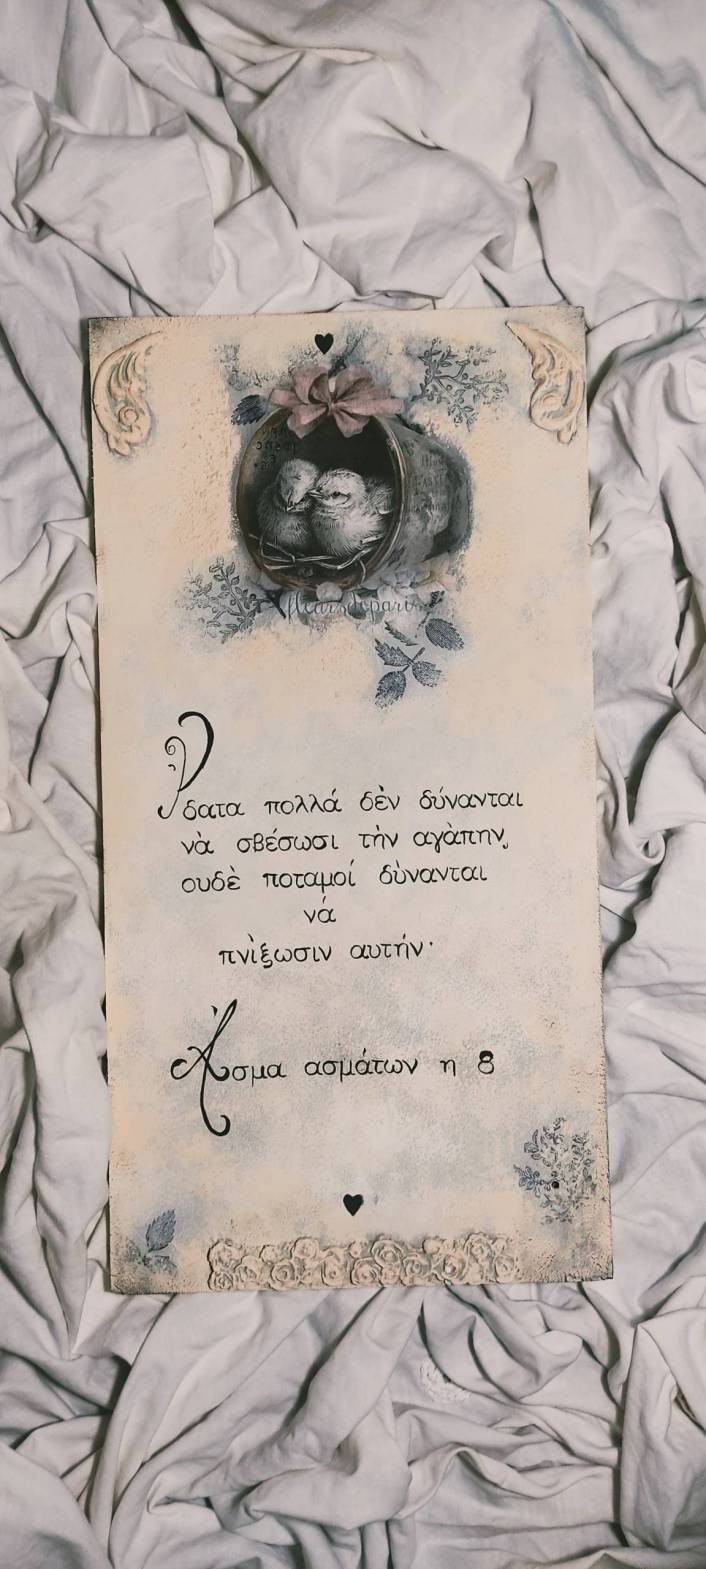 fleursdeparis
Ὕδατα πολλά δὲν δύνανται
νὰ σβέσωσι τὴν αγὰπην,
ουδὲ ποταμοί δὺνανται
νά
πνὶξωσιν αυτήν·
Ἆσμα ασμάτων η 8